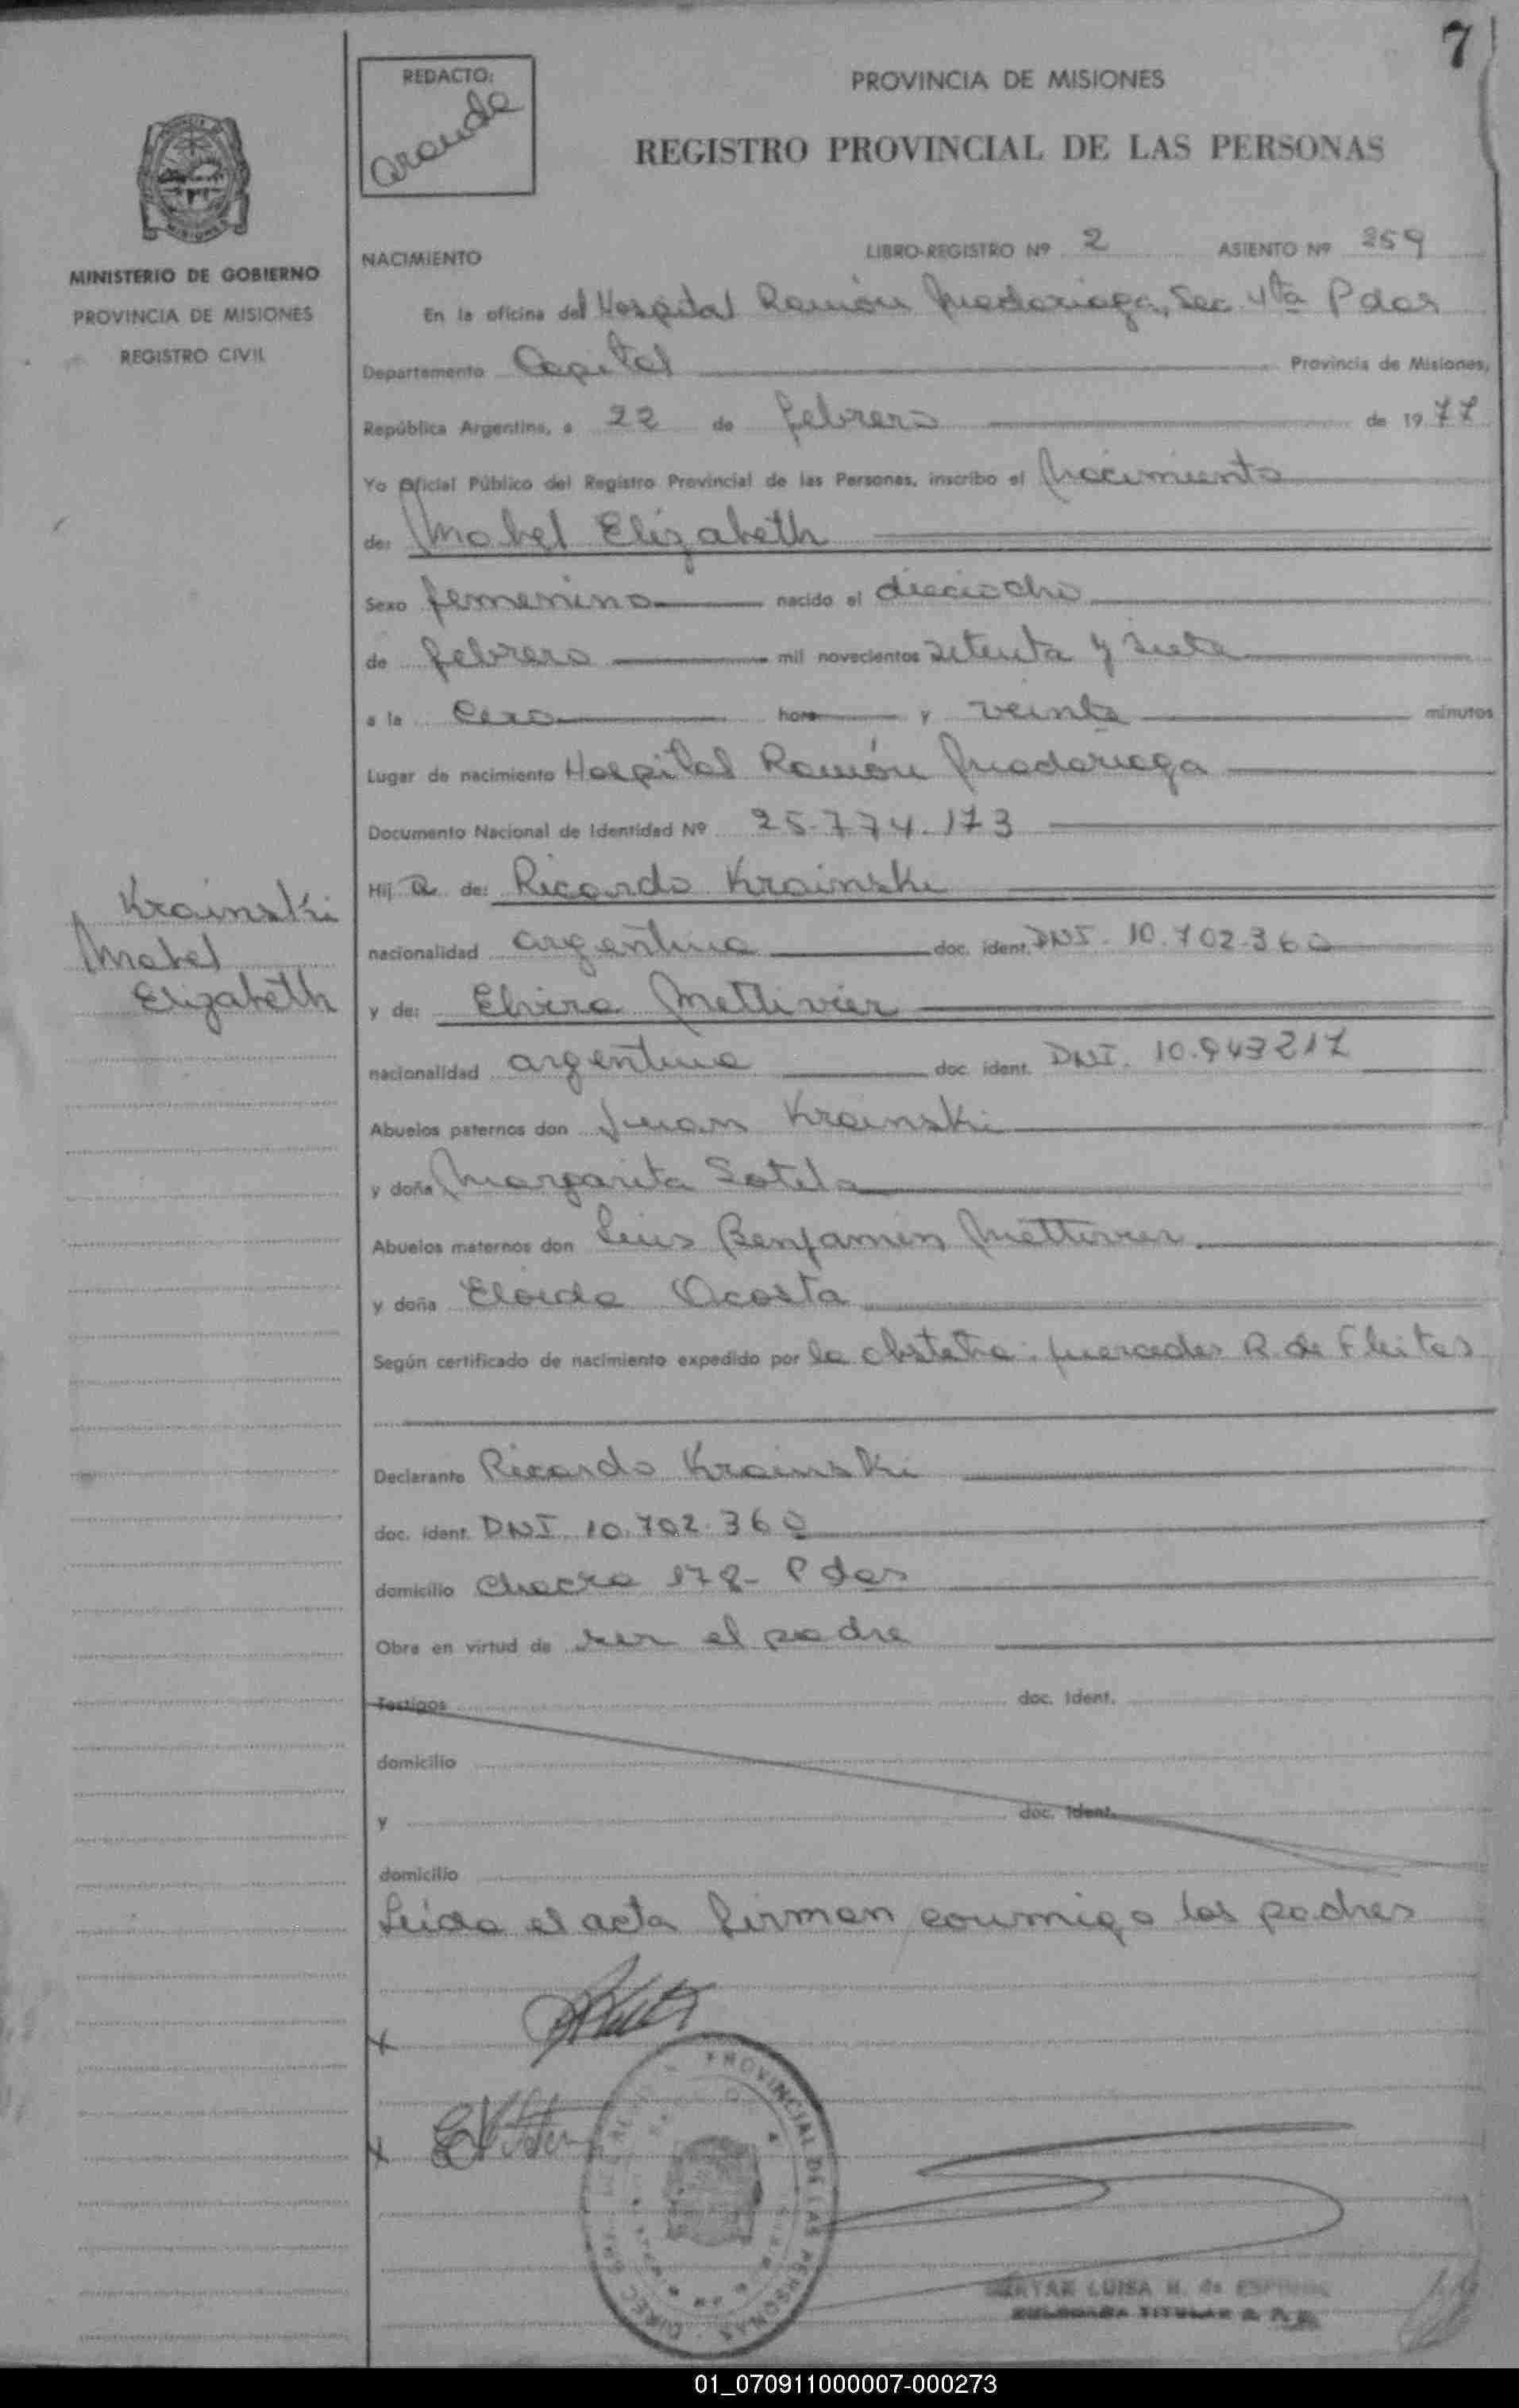 7
REDACTO:
Aranda
PROVINCIA DE MISIONES
REGISTRO PROVINCIAL DE LAS PERSONAS
MINISTERIO DE GOBIERNO
PROVINCIA DE MISIONES
REGISTRO CIVIL
NACIMIENTO LIBRO-REGISTRO Nº 2 ASIENTO Nº 259
En la oficina del Hospital Ramón Madariaga, Sec. 4ta Pdas
Departamento Capital Provincia de Misiones,
República Argentina, a 22 de febrero de 1977
Yo Oficial Público del Registro Provincial de las Personas, inscribo el Nacimiento
de: Mabel Elizabeth
Sexo femenino nacido el dieciocho
de febrero mil novecientos setenta y siete
a la cero hora y veinte minutos
Lugar de nacimiento Hospital Ramón Madariaga
Documento Nacional de Identidad Nº 25.774.173
Hij a de: Ricardo Krainski
Krainski
Mabel
Elizabeth
nacionalidad argentina doc. ident. DNI. 10.702.360
y de: Elvira Mettivier
nacionalidad argentina doc. ident. DNI. 10.943217
Abuelos paternos don Juan Krainski
y doña Margarita Sotelo
Abuelos maternos don Luis Benjamin Mettivier
y doña Eloida Acosta
Según certificado de nacimiento expedido por la obstetra: Mercedes R. de Fleitas
Declarante Ricardo Krainski
doc. ident. DNI 10.702.360
domicilio Chacra 178- Pdas
Obra en virtud de ser el padre
Testigos doc. Ident.
domicilio
y doc. Ident.
domicilio
Leida el acta firman conmigo los padres
x
x
PROVINCIAL DE LAS PERSONAS
LUISA
TITULAR
01_070911000007-000273